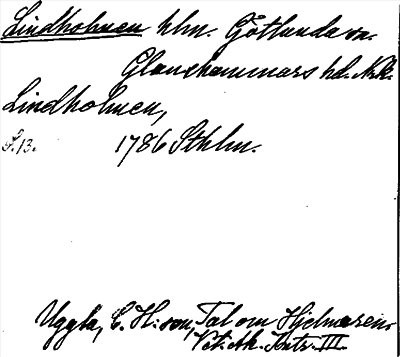 Lindholmen hlm. Götlunda sn.
Glanshammars hd. Nrk.
Lindholmen,
S. 13. 1786 Sthlm.
Uggla, C. H:son, Tal om Hjelmaren.
Vet. Ak. Hdlr. III.